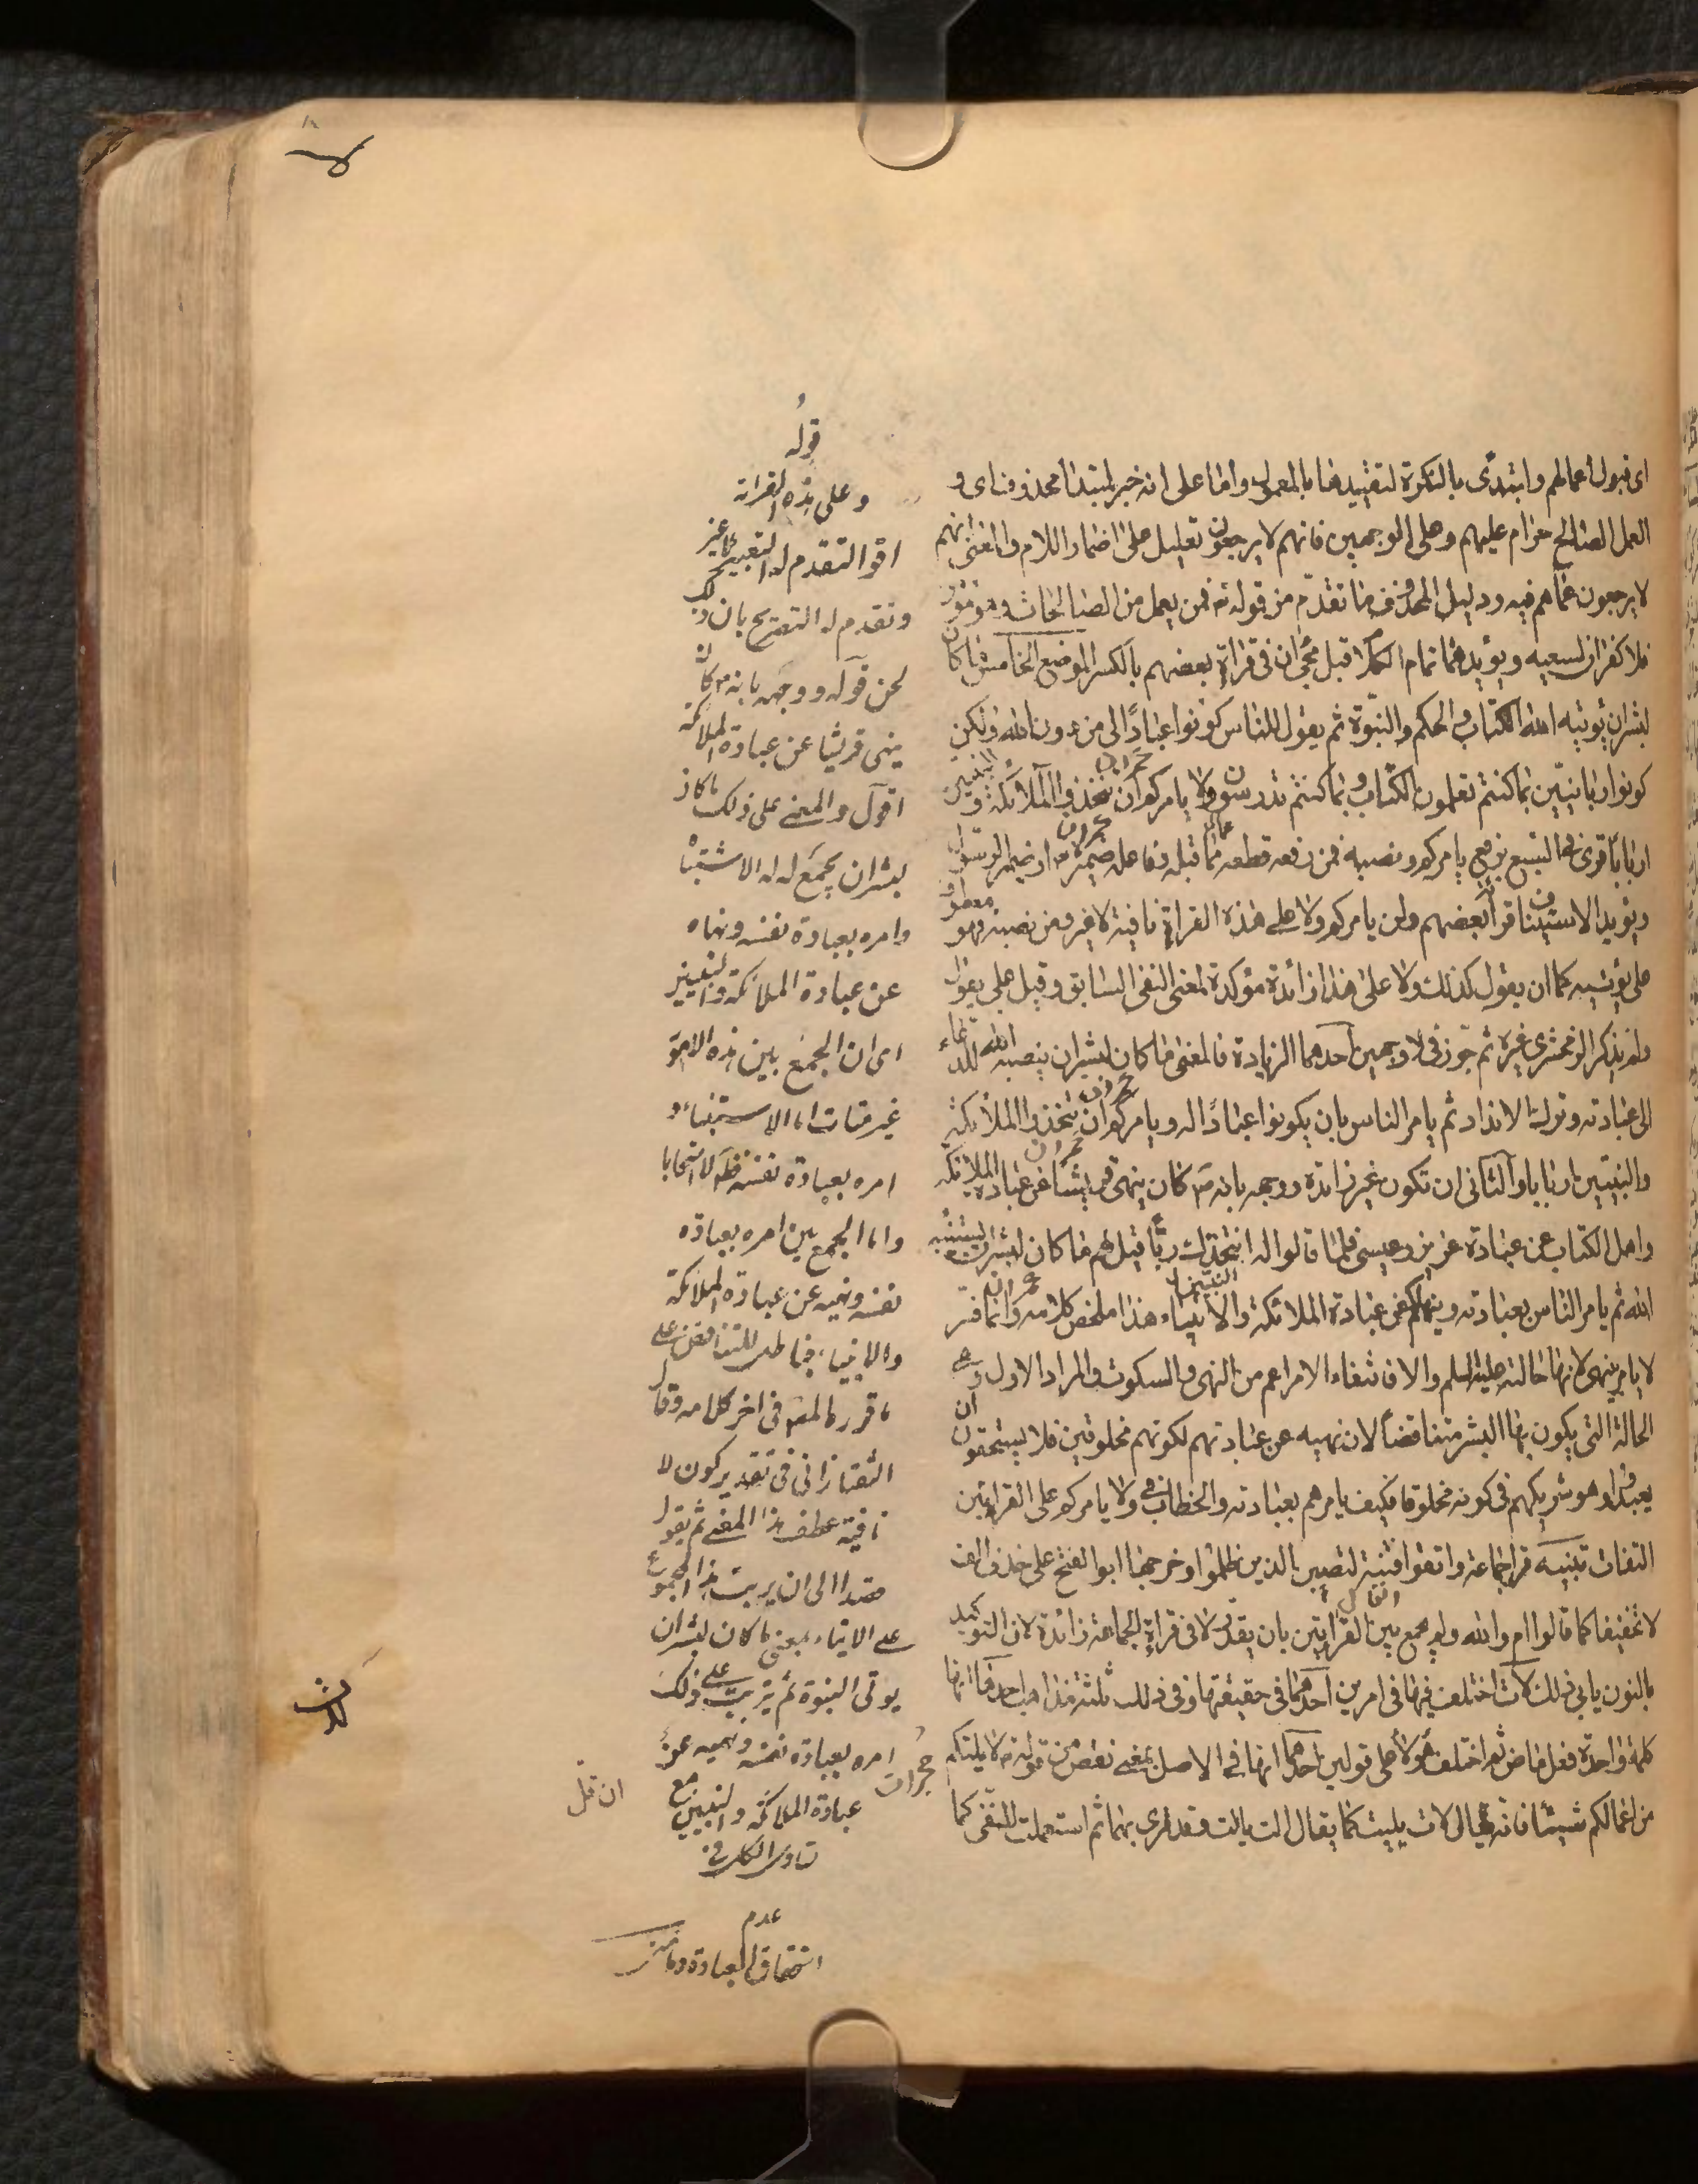 اى قبول اعمالهم وابتدئ بالنكرة لتقييدها بالمعمول واما على انه خبر لمبتدأ محذوف اى و
العمل الصالح حرام عليهم وعلى الوجهين فانهم لا يرجعون تعليل على اضمار اللام والمعنى انهم
لا يرجعون عما هم فيه ودليل المحذوف ما تقدم من قوله تع فمن يعمل من الصالحات وهو مؤمن
فلا كفران لسعيه ويؤيدهما تمام الكلام قبل مجئ ان فى قراءة بعضهم بالكسر الموضع الخامس ما كان
لبشر ان يؤتيه الله الكتاب والحكم والنبوة ثم يقول للناس كونوا عبادا لى من دون الله ولكن
كونوا ربانيين بما كنتم تعلمون الكتاب وبما كنتم تدرسون ولا يامركم ان تتخذوا الملائكة والنبيين
اربابا قرئ فى السبع برفع يامركم ونصبه فمن رفعه قطعه عما قبله وفاعله ضميره تع او ضمير الرسول
ويؤيد الاستيناف قرأ بعضهم ولن يامركم ولا على هذه القراءة نافية لا غير ومن نصبه فهو معطوف
على يؤتيه كما ان يقول كذلك ولا على هذا زائدة مؤكدة لمعنى النفى السابق وقيل على يقول
ولم يذكر الزمخشرى غيره ثم جوز فى لا وجهين احدهما الزيادة فالمعنى ما كان لبشر ان ينصبه الله للدعاء
الى عبادته وترك الانداد ثم يامر الناس بان يكونوا عبادا له ويامركم ان تتخذوا الملائكة
والنبيين اربابا والثانى ان تكون غير زائدة ووجهه بانه ص كان ينهى قريشا عن عبادة الملائكة
واهل الكتاب عن عبادة عزير وعيسى فلما قالوا له انتخذك ربا قيل لهم ما كان لبشر ان يستنبئه
الله ثم يامر الناس بعبادته وينهاكم عن عبادة الملائكة والانبياء هذا ملخص كلامه وانما فسر
لا يامر بينهى لانها حالته عليه السلم والا فانتفاء الامر اعم من النهى والسكوت والمراد الاول وهى
الحالة التى يكون بها البشر متناقضا لان نهيه عن عبادتهم لكونهم مخلوقين فلا يستحقون ان
يعبدوا وهو شريكهم فى كونه مخلوقا فكيف يامرهم بعبادته والخطاب فى ولا يامركم على القراءتين
التفات تنبيه قرأ جماعة واتقوا فتنة لتصيبن الذين ظلموا وخرجها ابو الفتح على حذف الف
لا تخفيفا كما قالوا ام والله ولم يجمع بين القرائتين بان يقدر لا فى قراءة الجماعة زائدة لان التوكيد
بالنون يابى ذلك لات اختلف فيها فى امرين احدهما فى حقيقتها وفى ذلك ثلثة مذاهب احدها انها
كلمة واحدة فعل ماض ثم اختلف هؤلاء على قولين احدهما انها فى الاصل بمعنى نقص من قوله تع لا يلتكم
من اعمالكم شيئا فانه يقال لات يليت كما يقال الت يالت وقد قرئ بهما ثم استعملت للنفى كما
قوله
وعلى هذه القراءة
اقول تقدم له التعبير
وتقدم له التصريح بان ذلك
لحن قوله ووجهه بانه ص كان
ينهى قريشا عن عبادة الملائكة
اقول والمعنى على ذلك ما كان
لبشر ان يجمع له الاستنباء
وامره بعبادة نفسه ونهاه
عن عبادة الملائكة والنبيين
اى ان الجمع بين هذه الامور
غير متات اما الاستنباء و
امره بعبادة نفسه فظ
واما الجمع بين امره بعبادة
نفسه ونهيه عن عبادة الملائكة
والانبياء
ما قرره المص فى اخر كلامه وقال
التفتازانى فى تقدير كون لا
نافية عطف هذا المعنى ثم يقول
قصدا الى ان يرتب هذا المجموع
على الايتاء بمعنى ما كان لبشر ان
يؤتى النبوة ثم يترتب على ذلك
امره بعبادة نفسه ونهيه عن
عبادة الملائكة والنبيين مع
تساوى الكل فى
عدم
استحقاق العبادة
حجرات